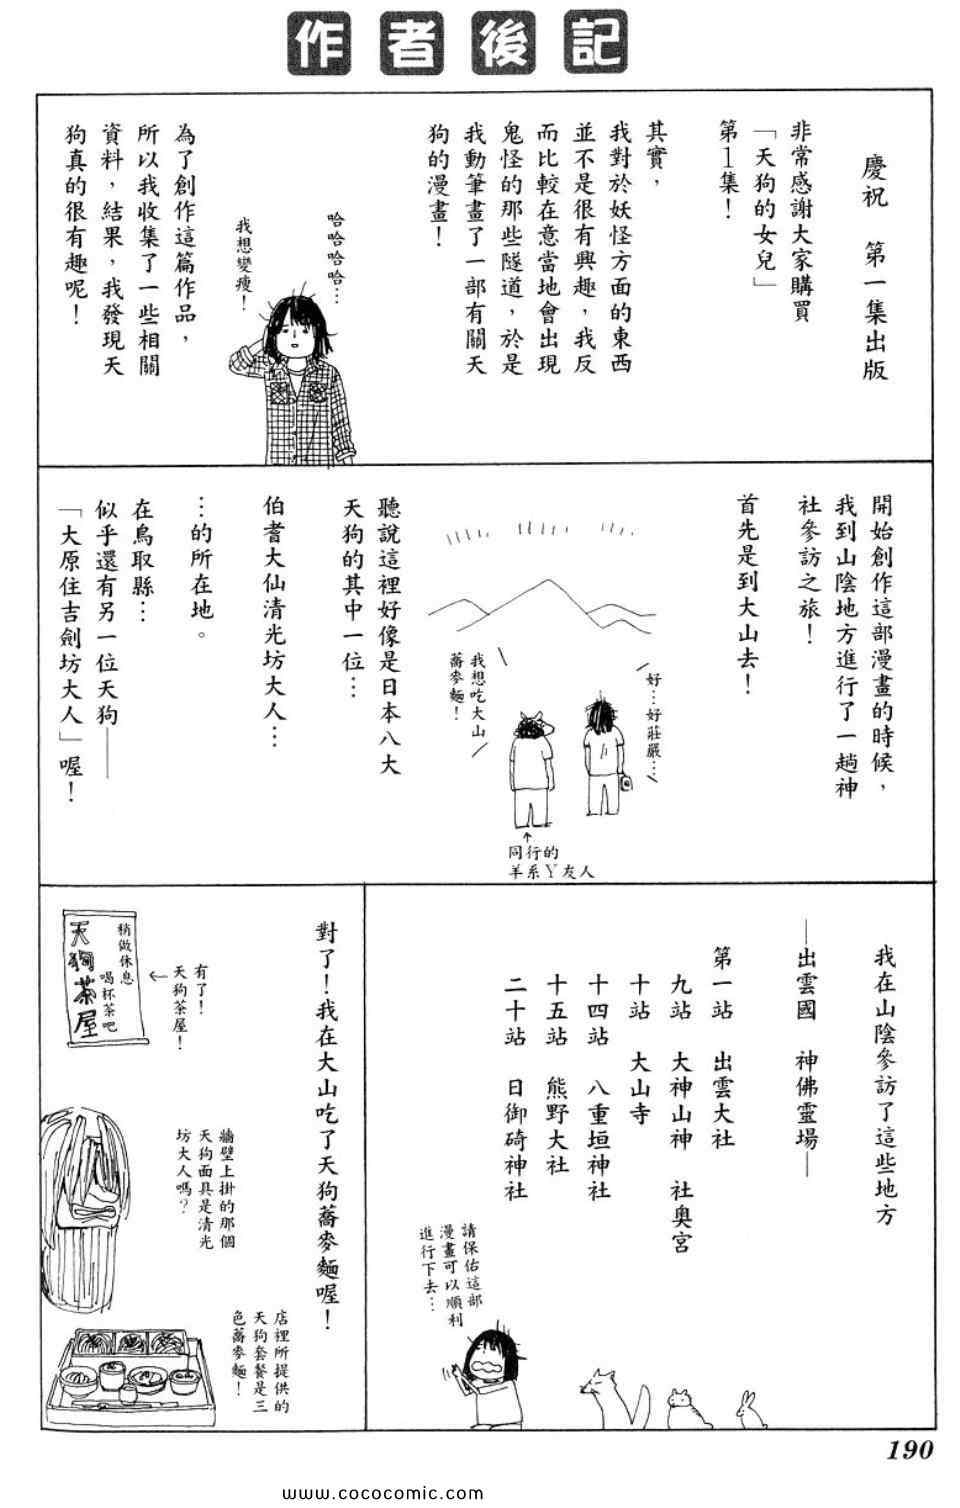 作者後記
慶祝　第一集出版
非常感謝大家購買
「天狗的女兒」
第1集！
其實，
我對於妖怪方面的東西
並不是很有興趣，我反
而比較在意當地會出現
鬼怪的那些隧道，於是
我動筆畫了一部有關天
狗的漫畫！
哈哈哈哈…
我想變瘦！
為了創作這篇作品，
所以我收集了一些相關
資料，結果，我發現天
狗真的很有趣呢！
開始創作這部漫畫的時候，
我到山陰地方進行了一趟神
社參訪之旅！
首先是到大山去！
好…好莊嚴…
我想吃大山
蕎麥麵！
同行的
羊系Y友人
聽說這裡好像是日本八大
天狗的其中一位…
伯耆大仙清光坊大人…
…的所在地。
在鳥取縣…
似乎還有另一位天狗——
「大原住吉劍坊大人」喔！
我在山陰參訪了這些地方
—出雲國　神佛靈場—
第一站　出雲大社
九站　大神山神　社奧宮
十站　大山寺
十四站　八重垣神社
十五站　熊野大社
二十站　日御碕神社
請保佑這部
漫畫可以順利
進行下去…
對了！我在大山吃了天狗蕎麥麵喔！
有了！
天狗茶屋！
稍做休息
喝杯茶吧
天狗茶屋
牆壁上掛的那個
天狗面具是清光
坊大人嗎？
店裡所提供的
天狗套餐是三
色蕎麥麵！
190
www.cococomic.com